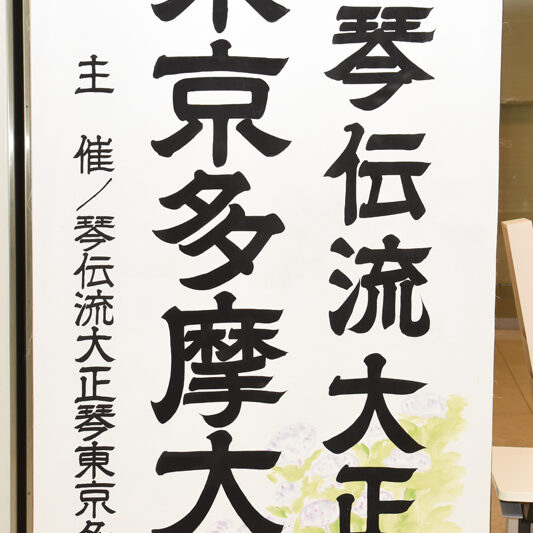 琴伝流大正
東京多摩大
主催／琴伝流大正琴東京多